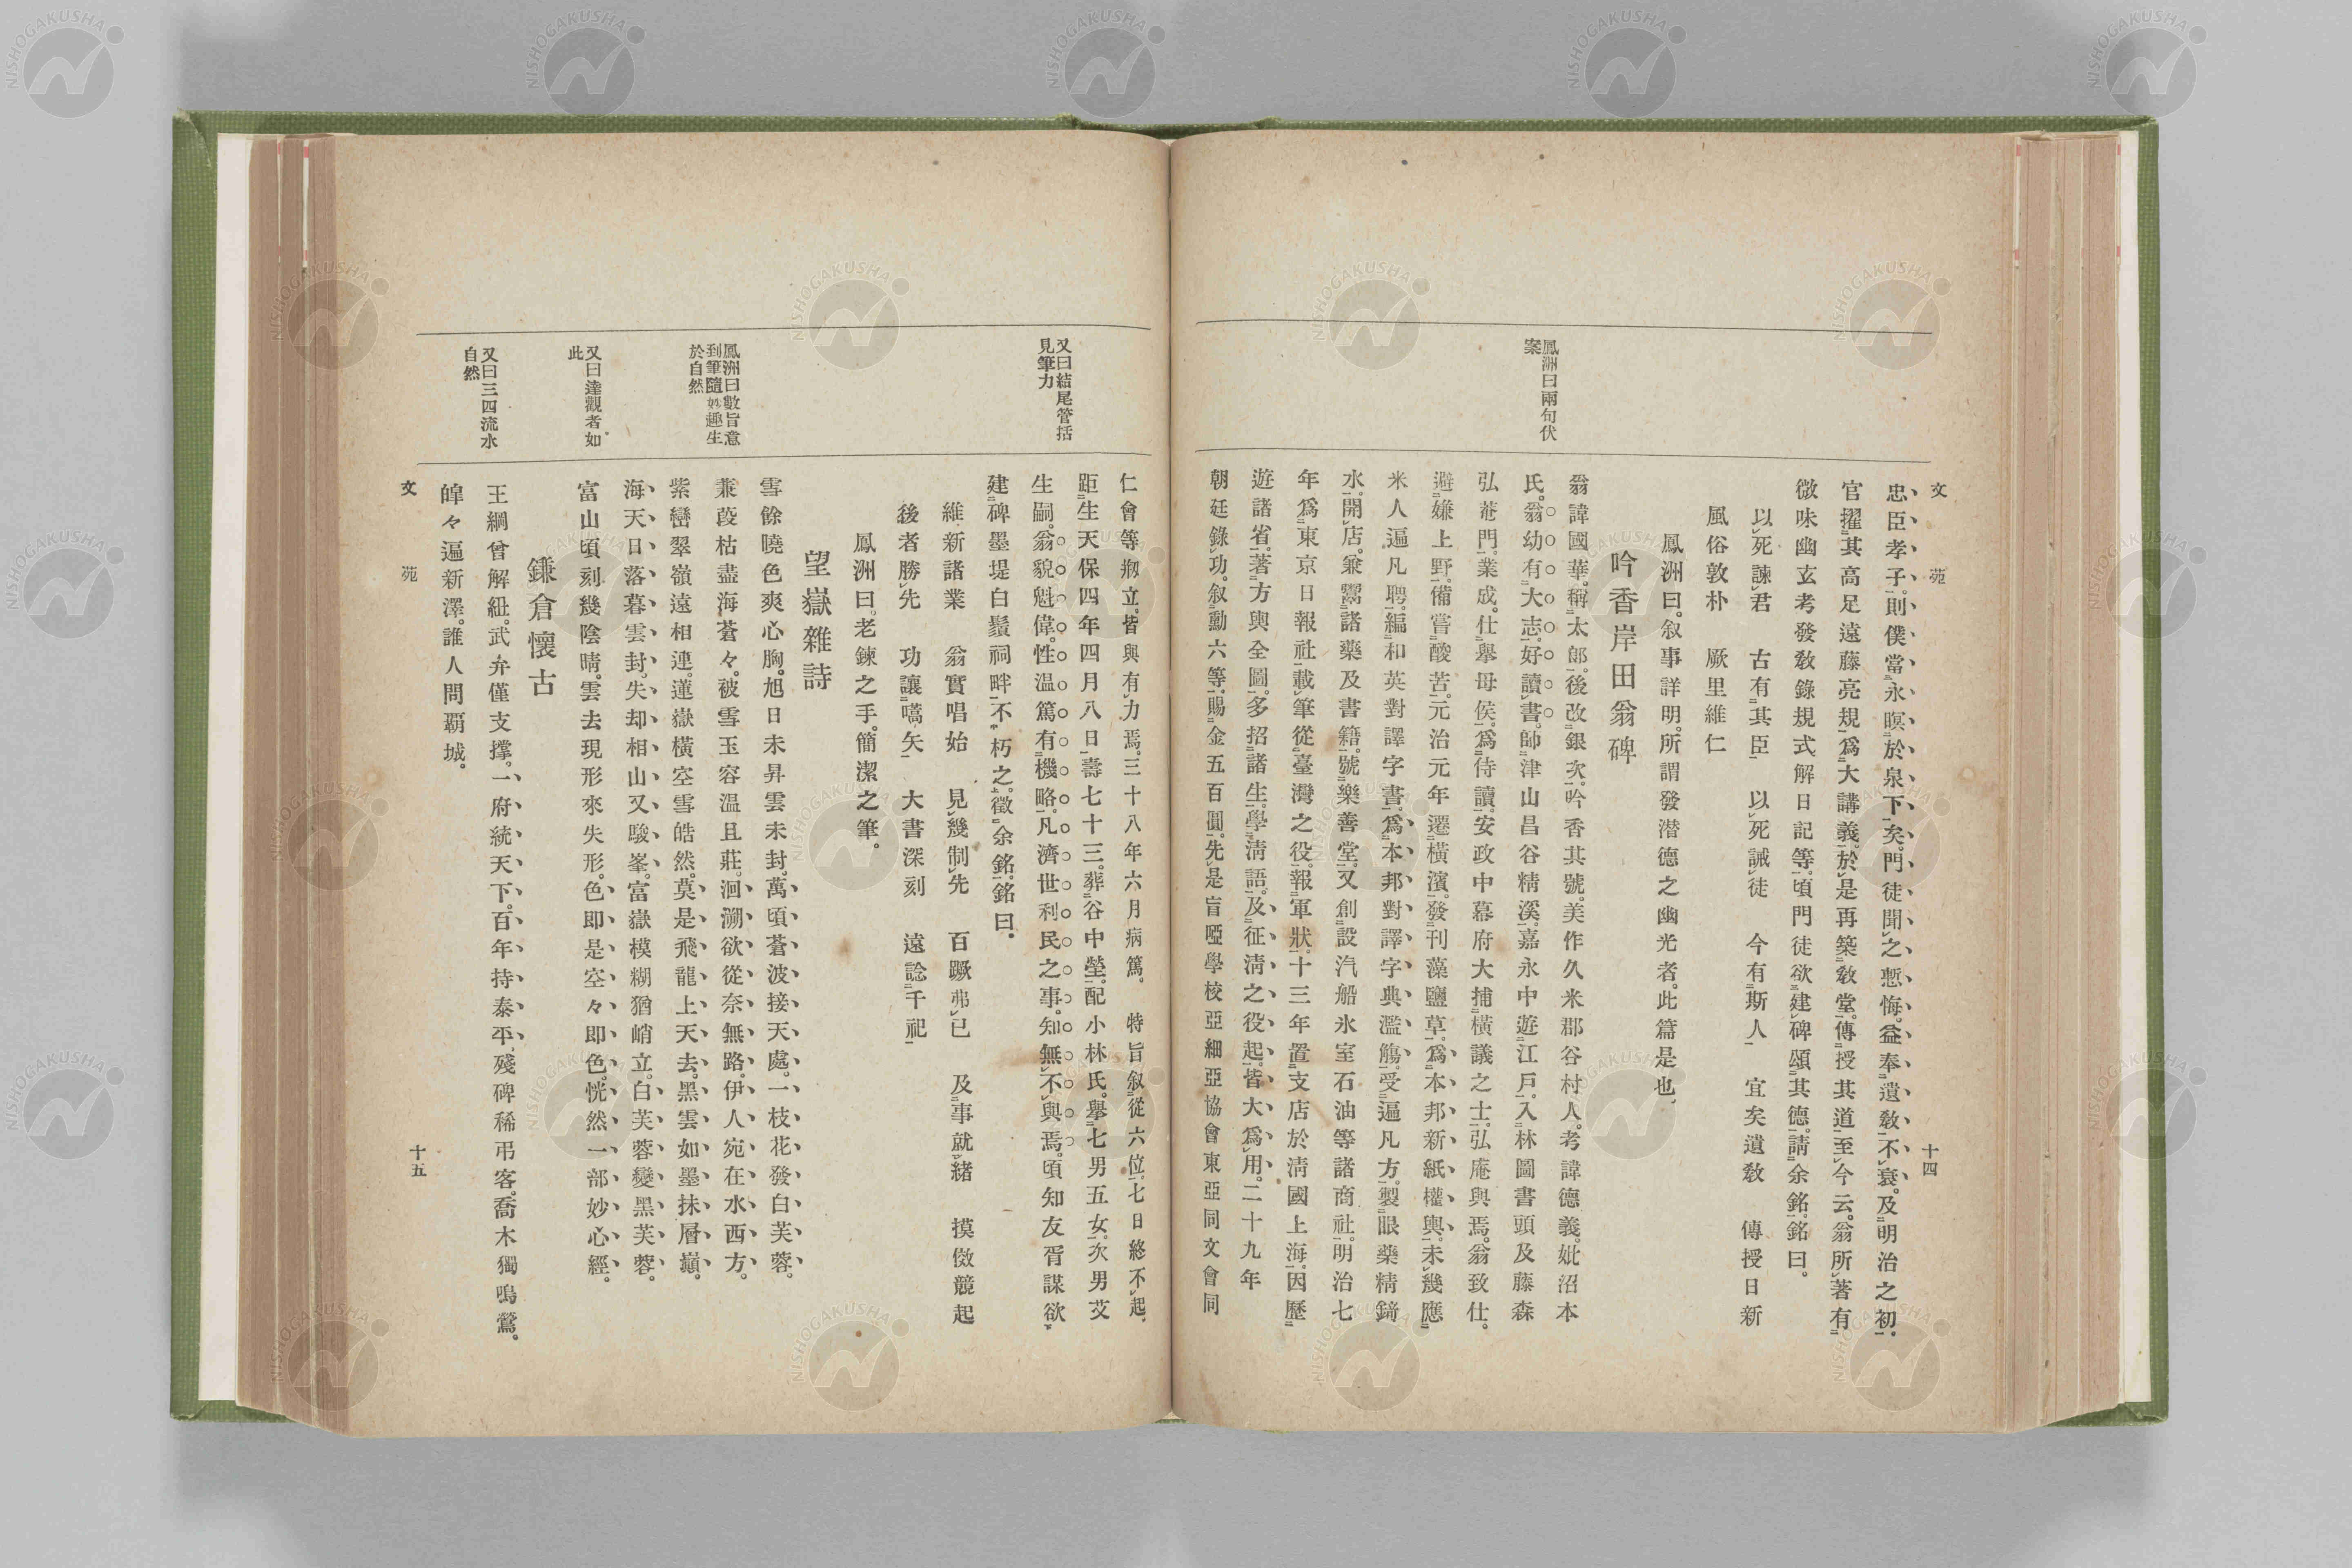 文苑
十四
忠臣孝子。則僕當永暝於泉下矣。門徒聞之慙悔。益奉遺敎不衰。及明治之初。
官擢其高足遠藤亮規爲大講義。於是再築敎堂。傳授其道至今云。翁所著有
微味幽玄考發敎錄規式解日記等。頃門徒欲建碑頌其德。請余銘。銘曰。
以死諫君　古有其臣　以死誡徒　今有斯人　宜矣遺敎　傳授日新
風俗敦朴　厥里維仁
鳳洲曰。叙事詳明。所謂發潜德之幽光者。此篇是也。
吟香岸田翁碑
鳳洲曰兩句伏
案
翁諱國華。稱太郎。後改銀次。吟香其號。美作久米郡谷村人。考諱德義。妣沼本
氏。翁幼有大志。好讀書。師津山昌谷精溪。嘉永中遊江戸。入林圖書頭及藤森
弘菴門。業成。仕擧母侯。爲侍讀。安政中幕府大捕橫議之士。弘庵與焉。翁致仕。
避嫌上野。備嘗酸苦。元治元年遷橫濱。發刊藻鹽草。爲本邦新紙權輿。未幾應
米人遍凡聘。編和英對譯字書。爲本邦對譯字典濫觴。受遍凡方。製眼藥精錡
水。開店。兼鬻諸藥及書籍。號樂善堂。又創設汽船氷室石油等諸商社。明治七
年爲東京日報社載筆從臺灣之役。報軍狀。十三年置支店於淸國上海。因歷
遊諸省。著方輿全圖。多招諸生。學淸語。及征淸之役起。皆大爲用。二十九年
朝廷錄功。叙勳六等。賜金五百圓。先是盲啞學校亞細亞協會東亞同文會同
仁會等剏立。皆與有力焉。三十八年六月病篤。　特旨叙從六位。七日終不起。
距生天保四年四月八日。壽七十三。葬谷中塋。配小林氏。擧七男五女。次男艾
生嗣。翁貌魁偉。性溫篤有機略。凡濟世利民之事。知無不與焉。頃知友胥謀欲
建碑墨堤白鬚祠畔不朽之。徵余銘。銘曰。
又曰結尾管括
見筆力
維新諸業　翁實唱始　見幾制先　百蹶弗已　及事就緖　摸傚競起
後者勝先　功讓嚆矢　大書深刻　遠諗千祀
鳳洲曰。老鍊之手。簡潔之筆。
望嶽雜詩
雪餘曉色爽心胸。旭日未昇雲未封。萬頃蒼波接天處。一枝花發白芙蓉。
蒹葭枯盡海蒼々。被雪玉容溫且莊。洄溯欲從奈無路。伊人宛在水西方。
鳳洲曰數旨意
到筆隨妙趣生
於自然
紫巒翠嶺遠相連。蓮嶽橫空雪皓然。莫是飛龍上天去。黑雲如墨抹層巓。
海天日落暮雲封。失却相山又駿峯。富嶽模糊猶峭立。白芙蓉變黑芙蓉。
富山頃刻幾陰晴。雲去現形來失形。色卽是空々卽色。恍然一部妙心經。
又曰達觀者如
此
鎌倉懷古
王綱曾解紐。武弁僅支撐。一府統天下。百年持泰平。殘碑稀弔客。喬木獨鳴鶯。
皡々遍新澤。誰人問覇城。
又曰三四流水
自然
文苑
十五